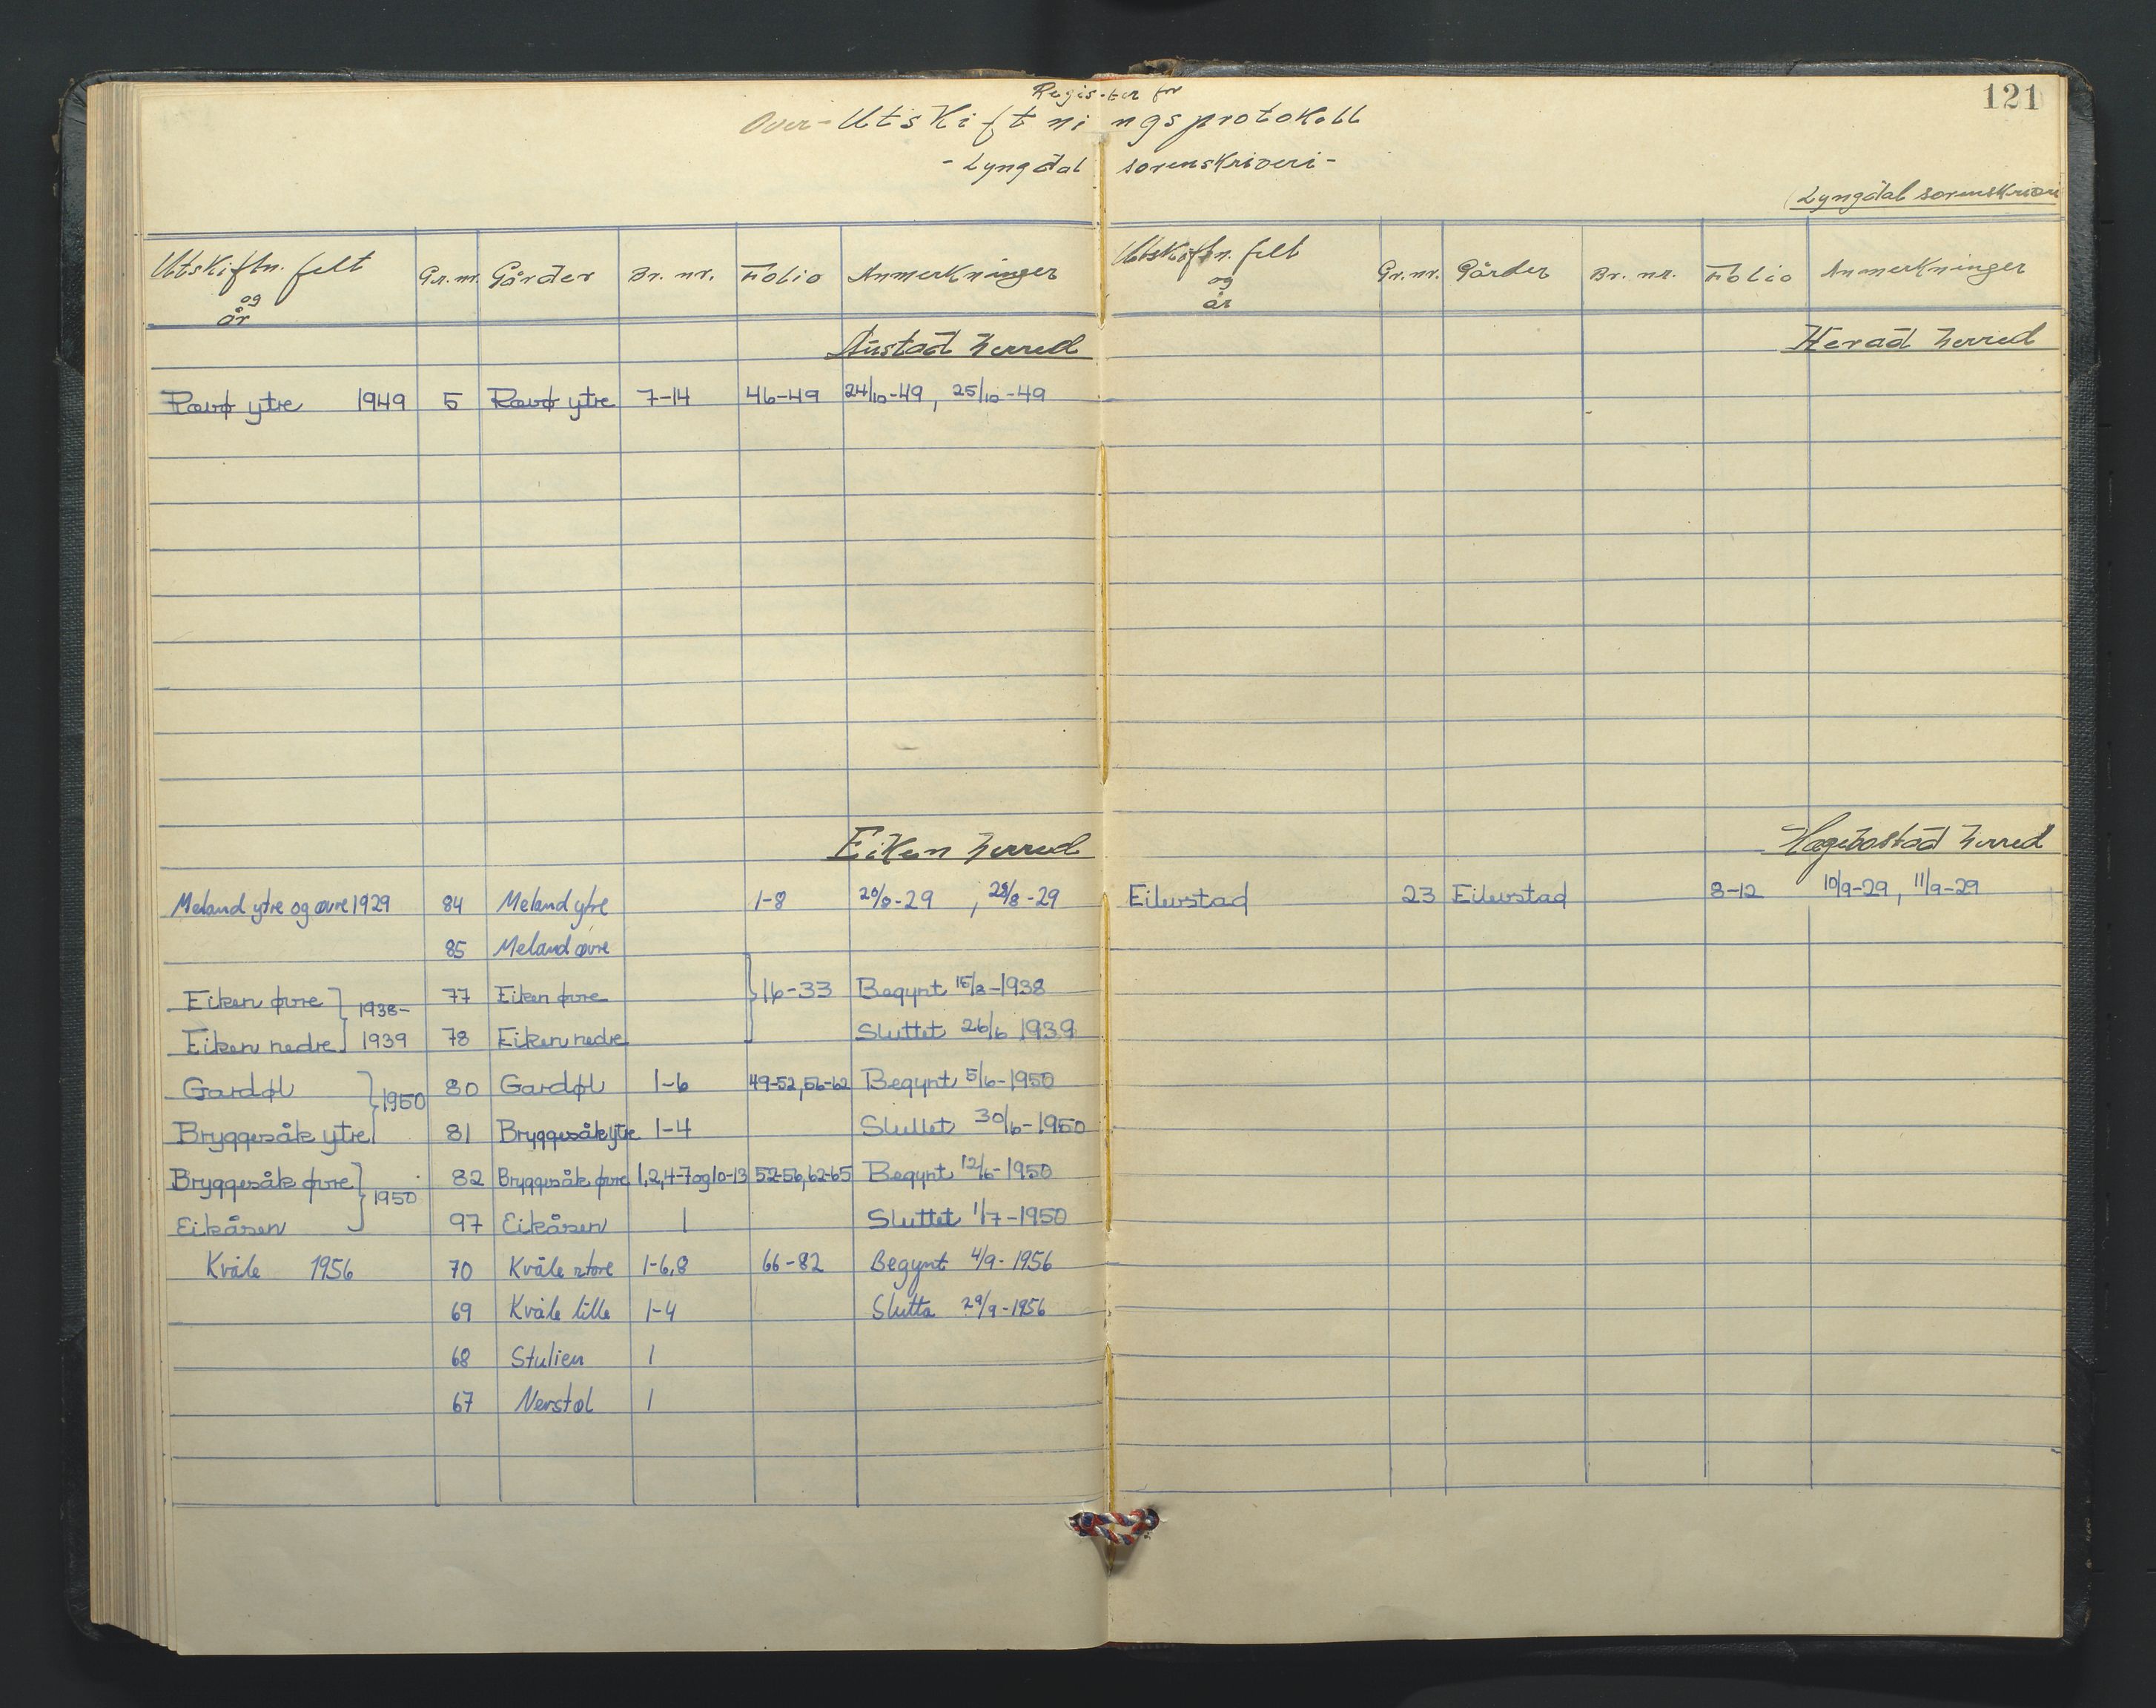 121
Register for
Over-Utskiftningsprotokoll
- Lyngdal sorenskriveri -
(Lyngdal sorenskriveri
Utskiftn. felt og år Gr.nr. Gårder Br. nr. Folio Anmerkninger
Austad herred
Rævø ytre 1949 5 Rævø ytre 7-14 46-49 24/10-49, 25/10-49
Eiken herred
Meland ytre og øvre 1929 84 Meland ytre 1-8 20/8-29, 28/8-29
85 Meland øvre
Eiken øvre } 1938- 77 Eiken øvre } 16-33 Begynt 15/8-1938
Eiken nedre } 1939 78 Eiken nedre Sluttet 26/6 1939
Gardøl } 1950 80 Gardøl 1-6 49-52, 56-62 Begynt 5/6-1950
Bryggesåk ytre 81 Bryggesåk ytre 1-4 Sluttet 30/6-1950
Bryggesåk øvre } 1950 82 Bryggesåk øvre 1,2,4-7 og 10-13 52-56, 62-65 Begynt 12/6-1950
Eikåsen 97 Eikåsen 1 Sluttet 1/7-1950
Kvåle 1956 70 Kvåle store 1-6,8 66-82 Begynt 4/9-1956
69 Kvåle lille 1-4 Slutta 29/9-1956
68 Stulien 1
67 Nerstøl 1
Utskiftn. felt og år Gr.nr. Gårder Br. nr. Folio Anmerkninger
Herad herred
Hægebostad herred
Eilevstad 23 Eilevstad 8-12 10/9-29, 11/9-29